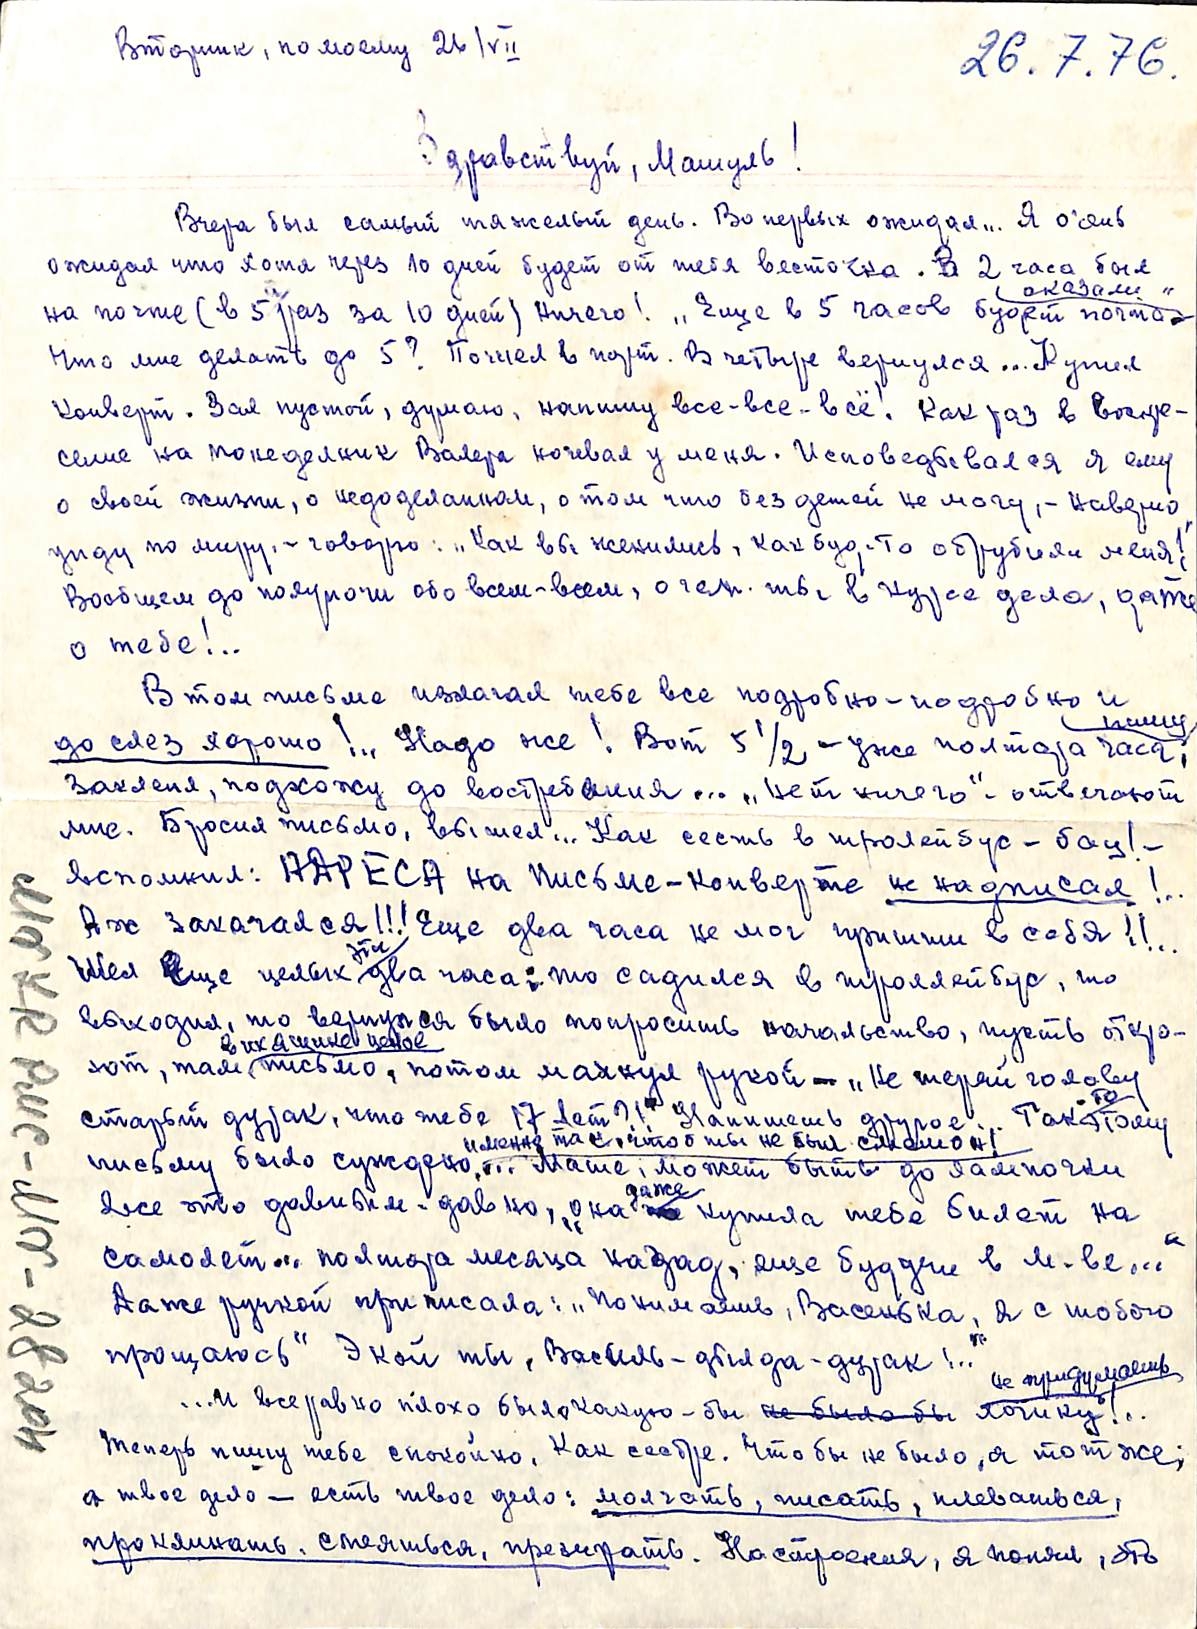 Вторник, по моему 26/VII
26.7.76.
Здравствуй, Машуль!
Вчера был самый тяжелый день. Во первых ожидал... Я очень
ожидал что хотя через 10 дней будет от тебя весточка. В 2 часа был
на почте (в 5ый раз за 10 дней) Ничего! „Еще в 5 часов будет почта" сказали
Что мне делать до 5? Пошел в порт. В четыре вернулся... Купил
конверт. Зал пустой, думаю, напишу все-все-всё! Как раз в воскре-
сенье на понедельник Валера ночевал у меня. Исповедывался я ему
о своей жизни, о недоделанном, о том что без детей не могу, - наверно
уйду по миру, - говорю: „Как вы женились, как буд-то обрубили меня!"
Вообщем до полуночи обо всем-всем, о чем ты в курсе дела, даже
о тебе!..
В том письме излагал тебе все подробно-подробно и
до слез хорошо!.. Надо же! Вот 5 1/2 - уже полтора часа пишу,
Заклеил, подхожу до востребования... „нет ничего" - отвечают
мне. Бросил письмо, вышел... Как сесть в тролейбус - бац! -
вспомнил: АДРЕСА на письме-конверте не надписал!..
Аж закачался!!! Еще два часа не мог прийти в себя!!!..
Шел еще целых эти два часа: то садился в троллейбус, то
выходил, то вернулся было попросить начальство, пусть откро-
ют, там в их ящике ценое письмо, потом махнул рукой - „Не теряй голову
старый дурак, что тебе 17 лет?!" Напишешь другое... Так-то этому
письму было суждено... именно так, чтоб ты не был смешон! Маше, может быть до лампочки
все это давным-давно, „она даже купила тебе билет на
самолет... полтора месяца назад, еще будучи в М-ве..."
Даже ручкой приписала: „Понимаешь, Васенька, я с тобою
прощаюсь" Экой ты, Василь-дылда-дурак!.."
...И все равно плохо было, какую-бы не было бы логику не придумаешь!..
Теперь пишу тебе спокойно, как сестре. Что бы не было, я тот же;
а твое дело - есть твое дело: молчать, писать, плеваться,
проклинать, смеяться, презирать. Настроения, я понял, это